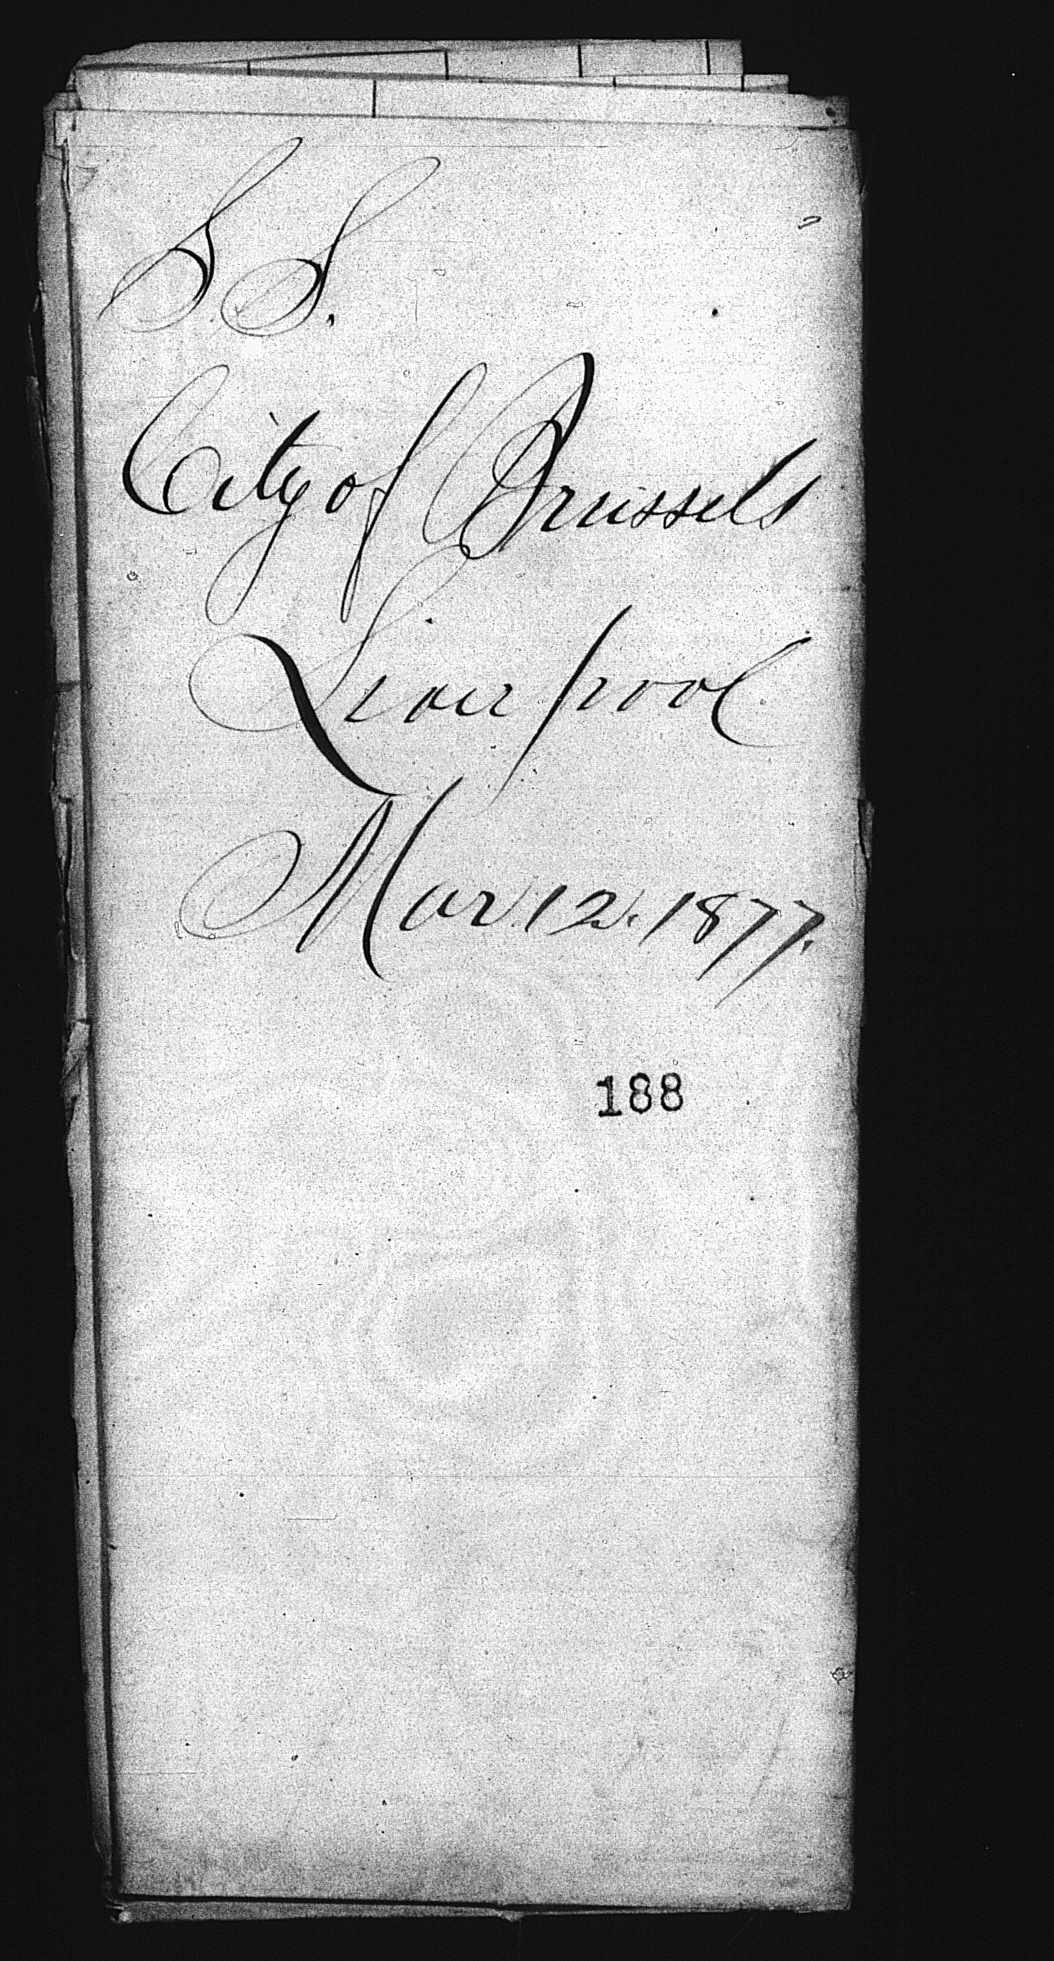 S.S.
City of Brussels
Liverpool
Mar. 12. 1877.
188